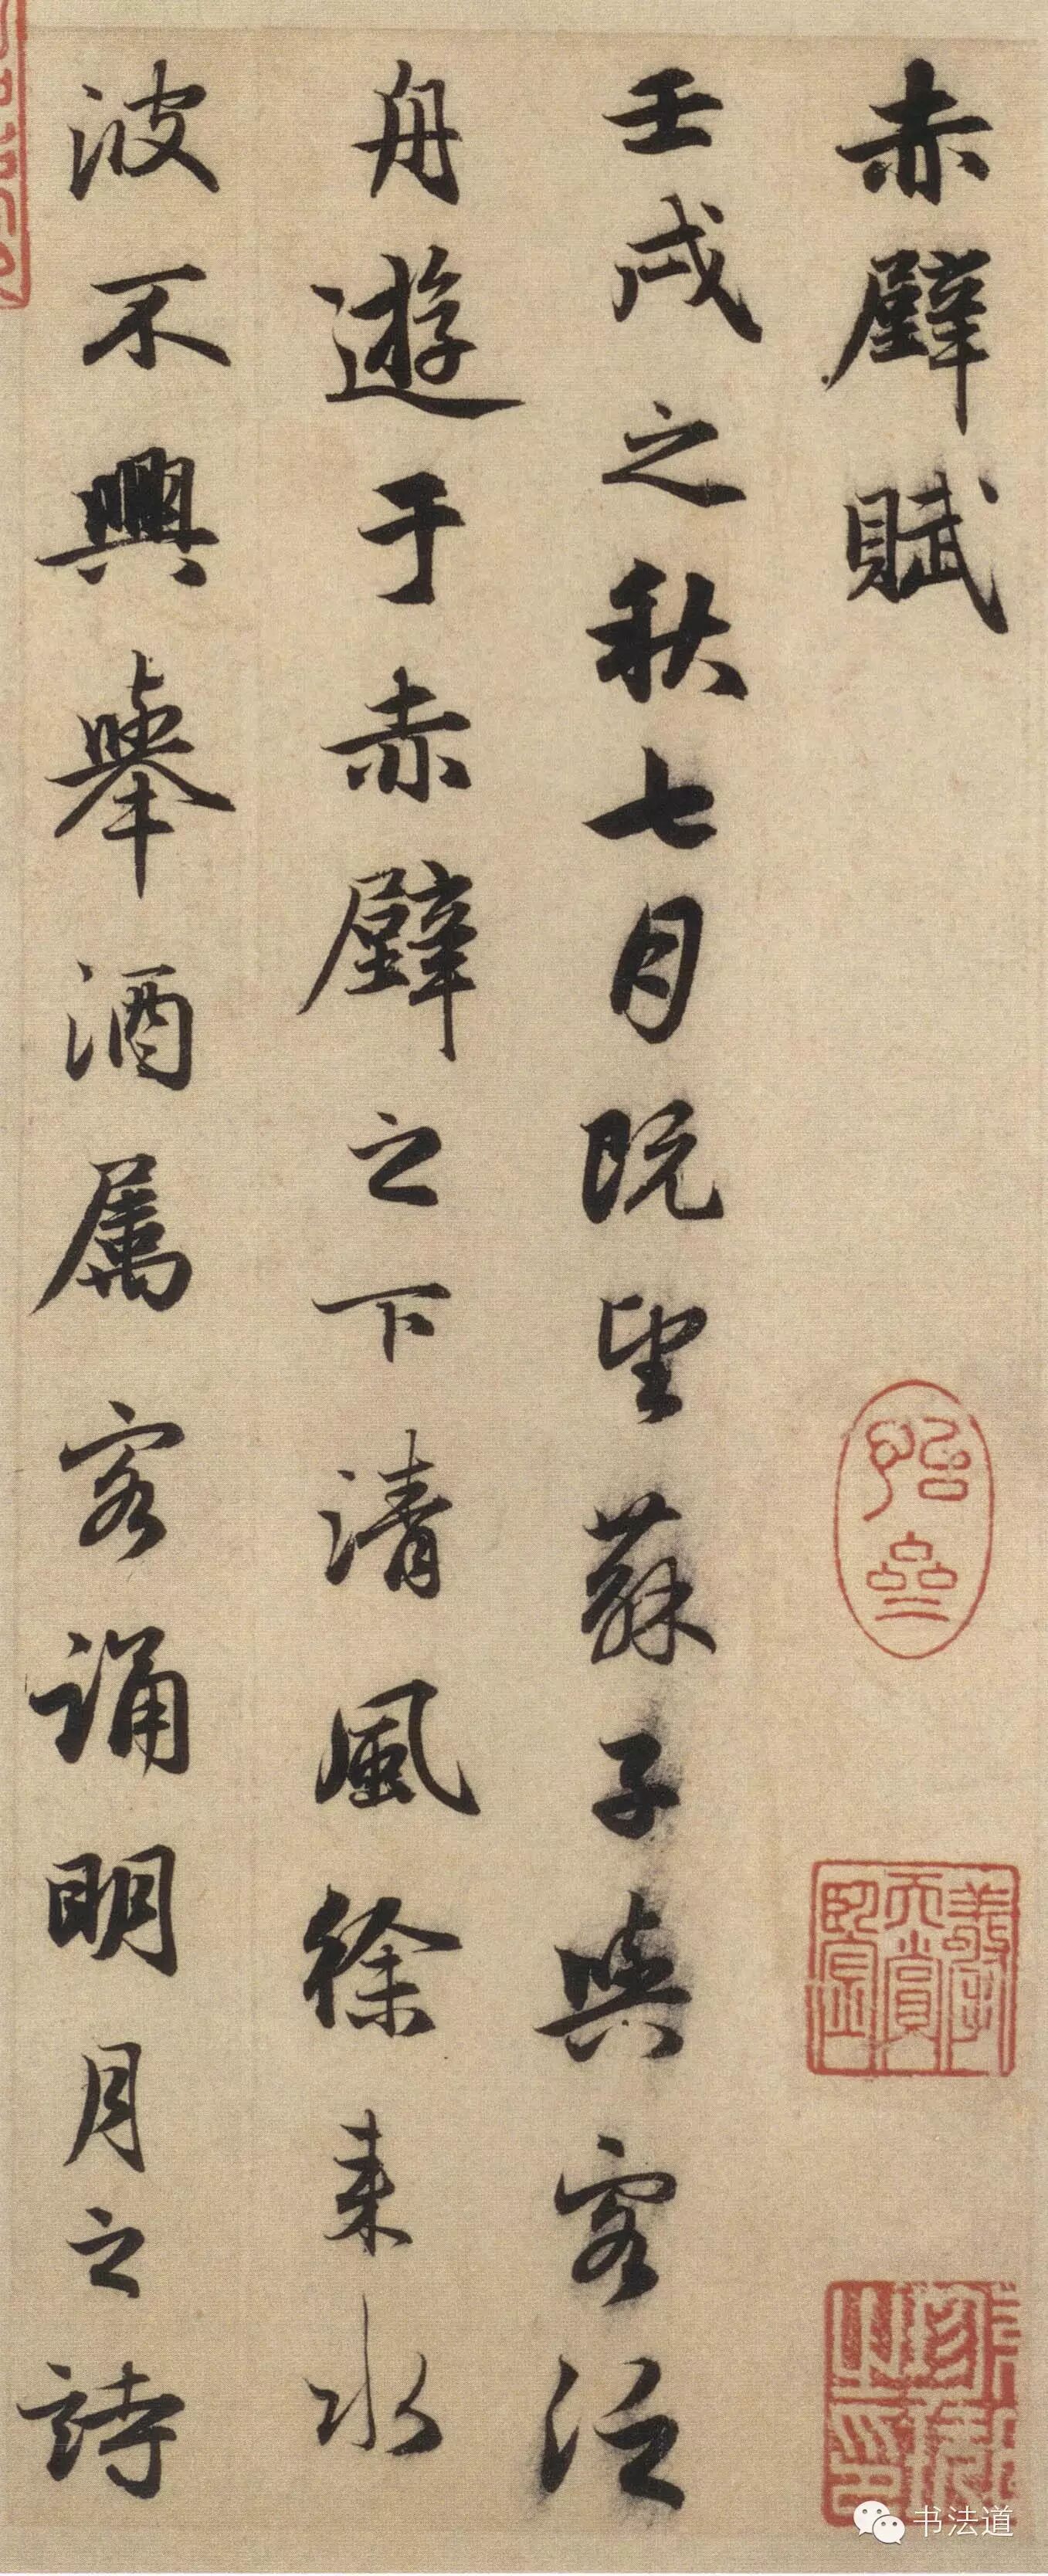 赤壁賦
壬戌之秋七月既望蘇子與客泛
舟遊于赤壁之下清風徐来水
波不興舉酒属客誦明月之詩
书法道